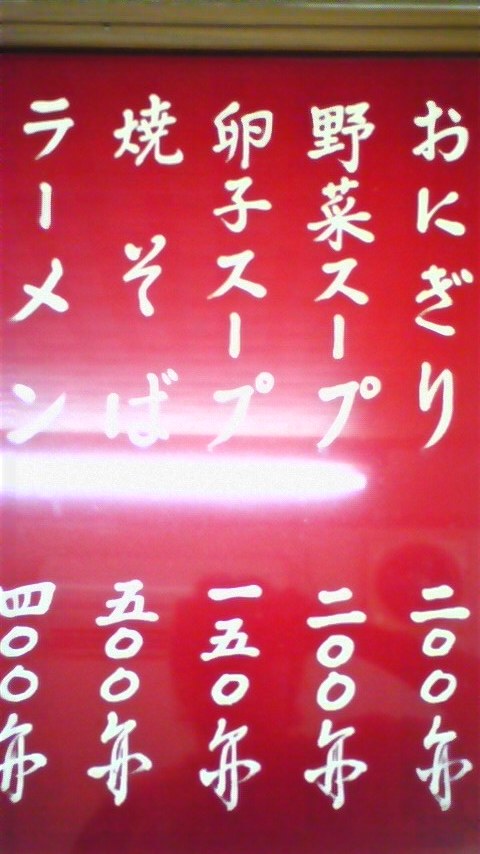 おにぎり 二〇〇円
野菜スープ 二〇〇円
卵子スープ 一五〇円
焼そば 五〇〇円
ラーメン 四〇〇円